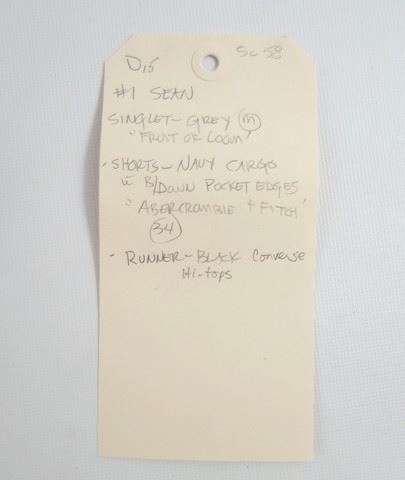 D15 Sc 58
#1 SEAN
SINGLET- GREY (m)
"FRUIT OF LOOM"
- SHORTS- NAVY CARGO
B/DOWN POCKET EDGES
"ABERCROMBIE + FITCH"
(34)
- RUNNER- BLACK Converse
Hi-tops